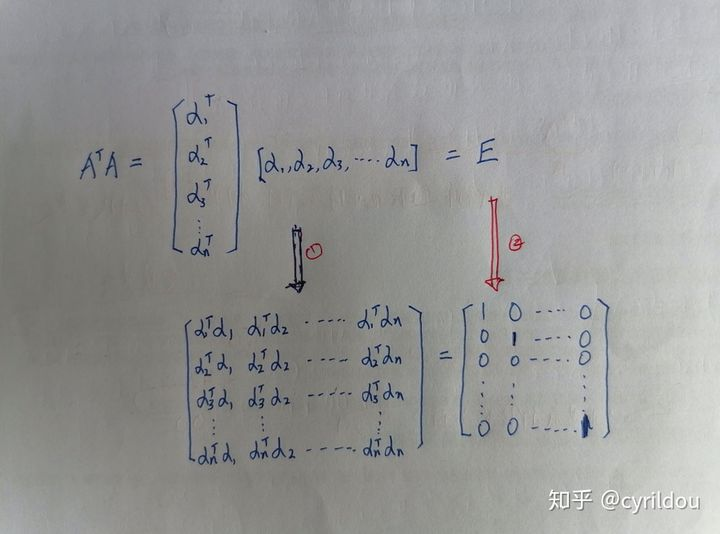 AᵀA = [α₁ᵀ α₂ᵀ α₃ᵀ ⋮ αₙᵀ] [α₁, α₂, α₃, ···· αₙ] = E
① ②
[α₁ᵀα₁ α₁ᵀα₂ ····· α₁ᵀαₙ] = [1 0 ···· 0]
[α₂ᵀα₁ α₂ᵀα₂ ····· α₂ᵀαₙ] [0 1 ····· 0]
[α₃ᵀα₁ α₃ᵀα₂ ····· α₃ᵀαₙ] [0 0 ····· 0]
[⋮ ⋮ ⋮] [⋮ ⋮ ⋮]
[αₙᵀα₁ αₙᵀα₂ ······ αₙᵀαₙ] [0 0 ······ 1]
知乎 @cyrildou